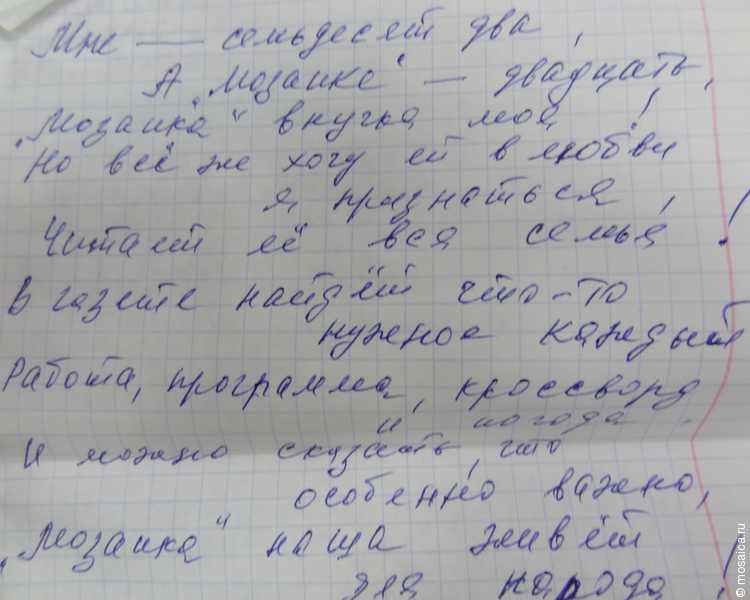 Мне — семьдесят два,
А „Мозаике“ — двадцать,
„Мозаика“ внучка моя!
Но всё же хочу ей в любви
я признаться,
Читает её вся семья!
В газете найдёт что-то
нужное каждый
Работа, программа, кроссворд
и погода.
И можно сказать, что
особенно важно,
„Мозаика“ наша живёт
для народа!
© mosaica.ru